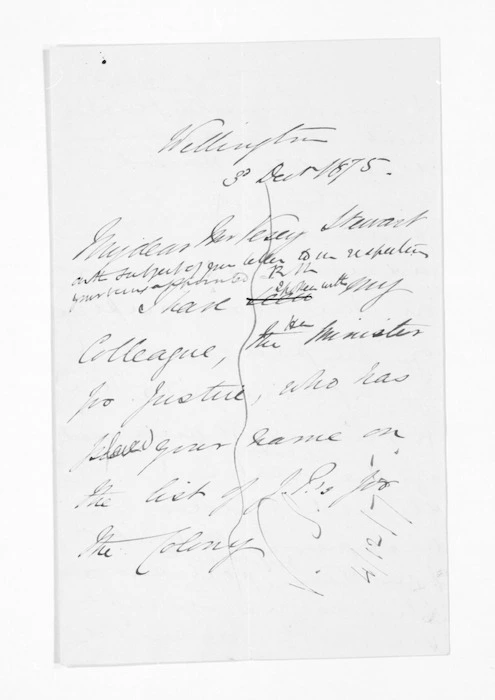 Wellington
3 Decr 1875.
My dear Mr Vesey Stewart
on the subject of your letter to me respecting
your being appointed
I have spoken with my
Colleague, the Hon Minister
for Justice, who has
placed your name on
the list of J.P.s for
the Colony
4/12/75